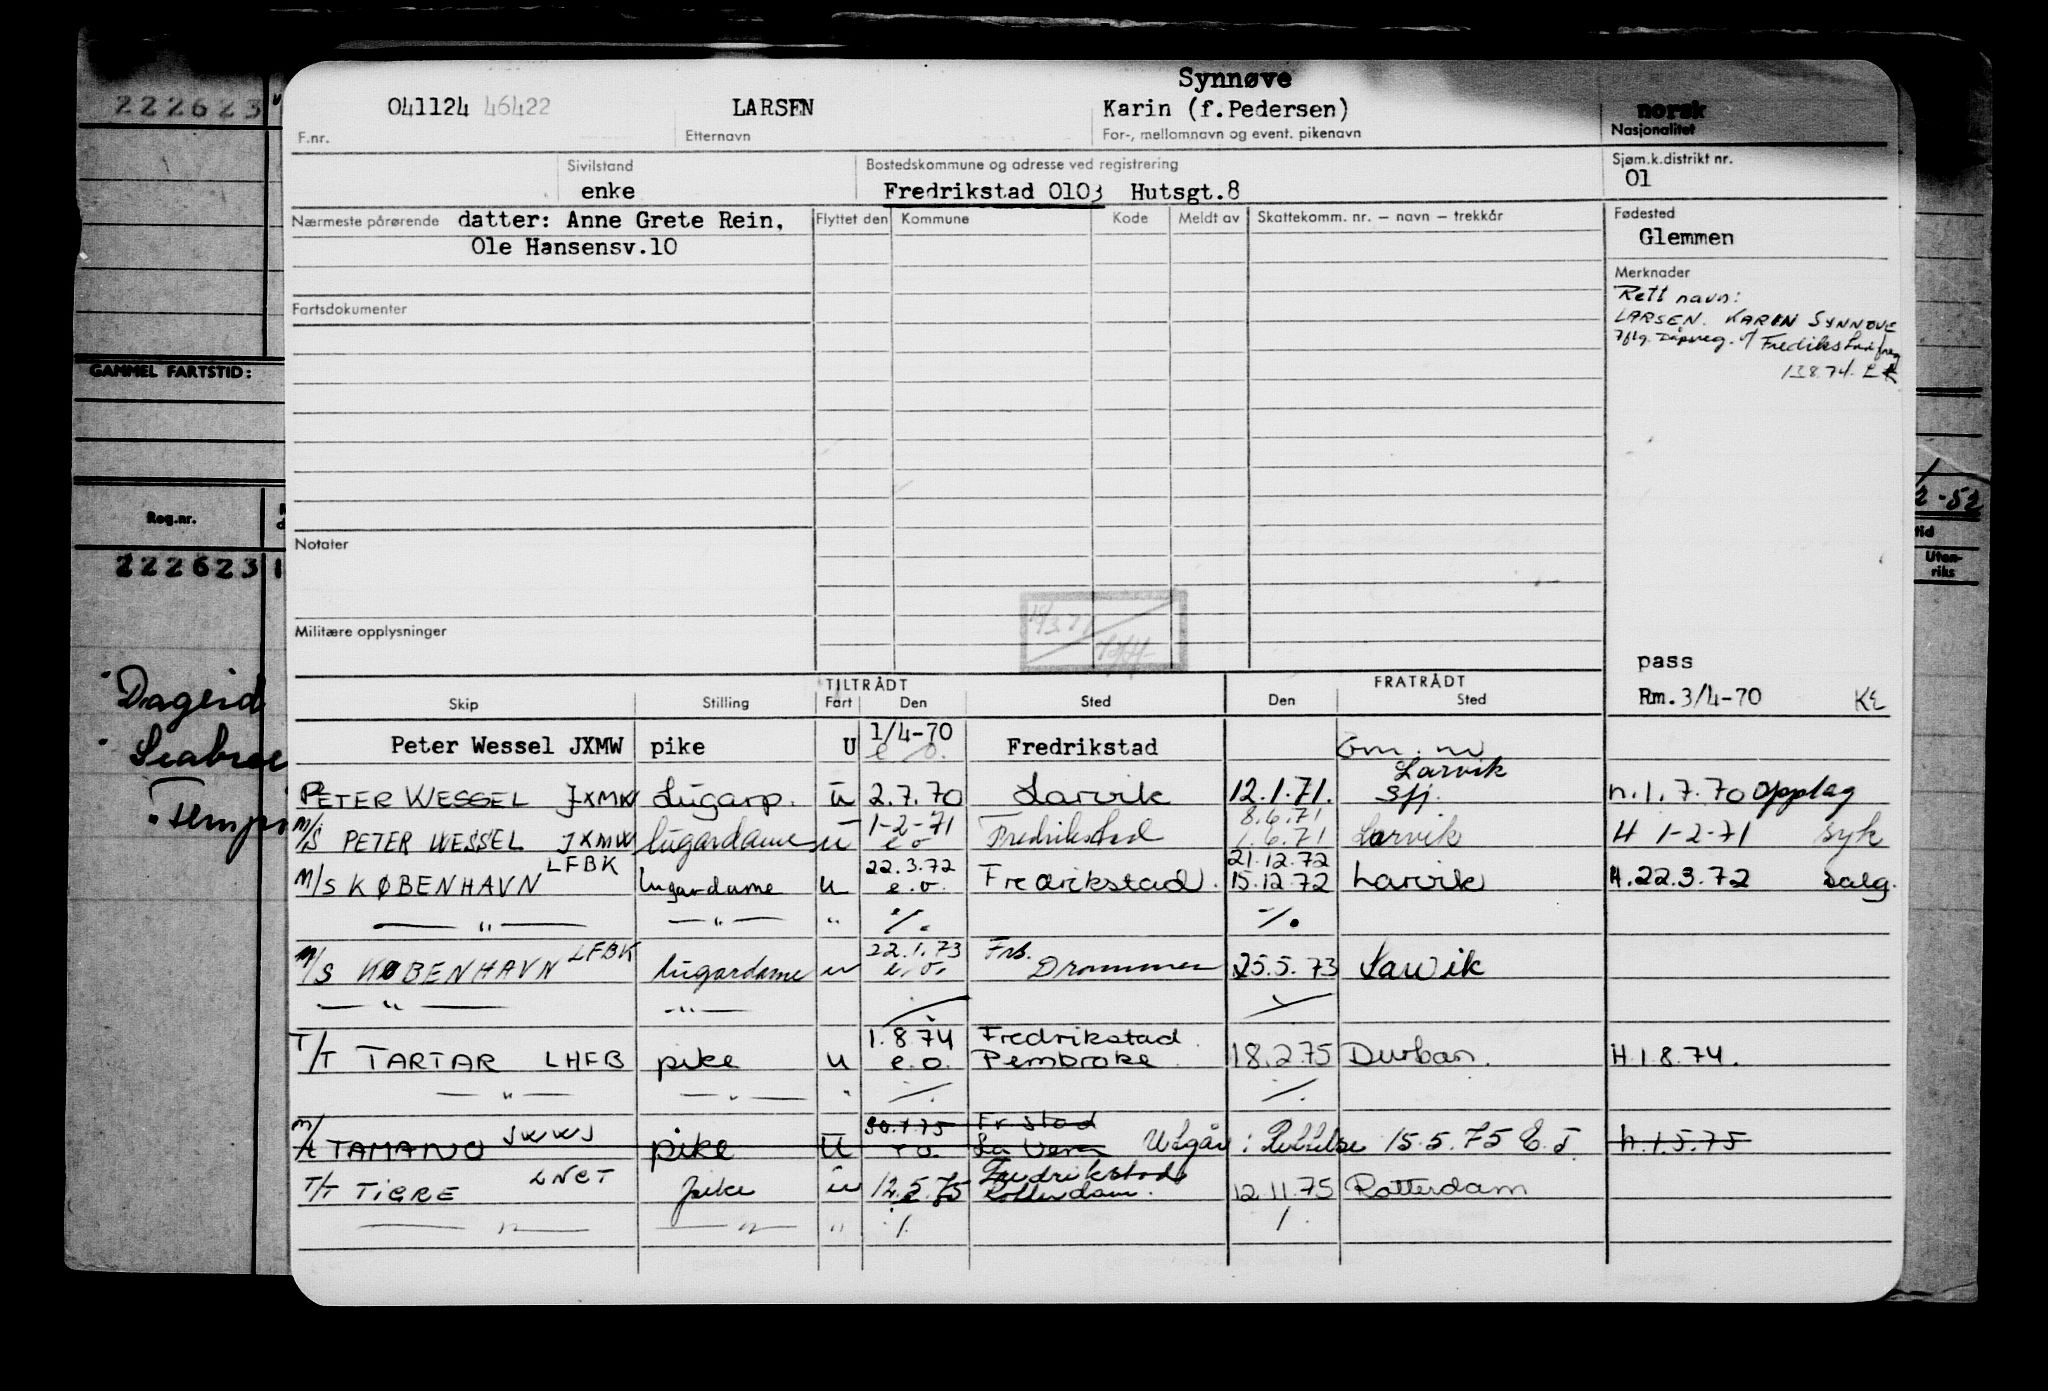 Synnøve
222623 041124 46422 LARSEN Karin (f.Pedersen) norsk
F.nr. Etternavn For-, mellomnavn og event. pikenavn Nasjonalitet
Sivilstand Bostedskommune og adresse ved registrering Sjøm.k.distrikt nr.
enke Fredrikstad 0103 Hutsgt.8 01
Nærmeste pårørende datter: Anne Grete Rein, Flyttet den Kommune Kode Meldt av Skattekomm. nr. – navn – trekkår Fødested
Ole Hansensv.10 Glemmen
Merknader
Rett navn:
LARSEN. KARIN SYNNØVE
Fartsdokumenter
Fredikstad freg
13.8.74.
GAMMEL FARTSTID:
2-52
Reg.nr.
Notater
Uten-
riks
222623 1
Militære opplysninger
pass
Dageid TILTRÅDT FRATRÅDT
Skip Stilling Fart Den Sted Den Sted Rm. 3/4-70 KE
1/4-70
Peter Wessel JXMW pike U e.o. Fredrikstad
Larvik
PETER WESSEL JXMW Lugarp. u 2.7.70 Larvik 12.1.71. Sfj. n.1.7.70 Opplag
1-2-71 8.6.71
M/S PETER WESSEL JXMW lugardame u e o Fredrikstad 1.6.71 Larvik H 1-2-71 syk
LFBK 22.3.72 21.12.72
M/S KØBENHAVN lugardame u e.o. Fredrikstad. 15.12.72 Larvik H.22.3.72 salg.
— " — — " — " ·/. ·/.
LFBK 22.1.73 Frs.
M/S KØBENHAVN lugardame u e.o. Drammen 25.5.73 Larvik
— " — — " —
1.8.74 Fredrikstad.
T/T TARTAR LHFB pike u e.o. Pembroke. 18.2.75 Durban. H.1.8.74.
— " — — " — " ·/. ·/.
30.4.75 Fr stad
TAMANO JWWJ pike U La Vera Utgår: Rettelse 15.5.75 E.T. h.1.5.75
LNCT Fredrikstad
T/T TIGRE pike u 12.5.75 Rotterdam. 12.11.75 Rotterdam
— " — — " — " ·/.